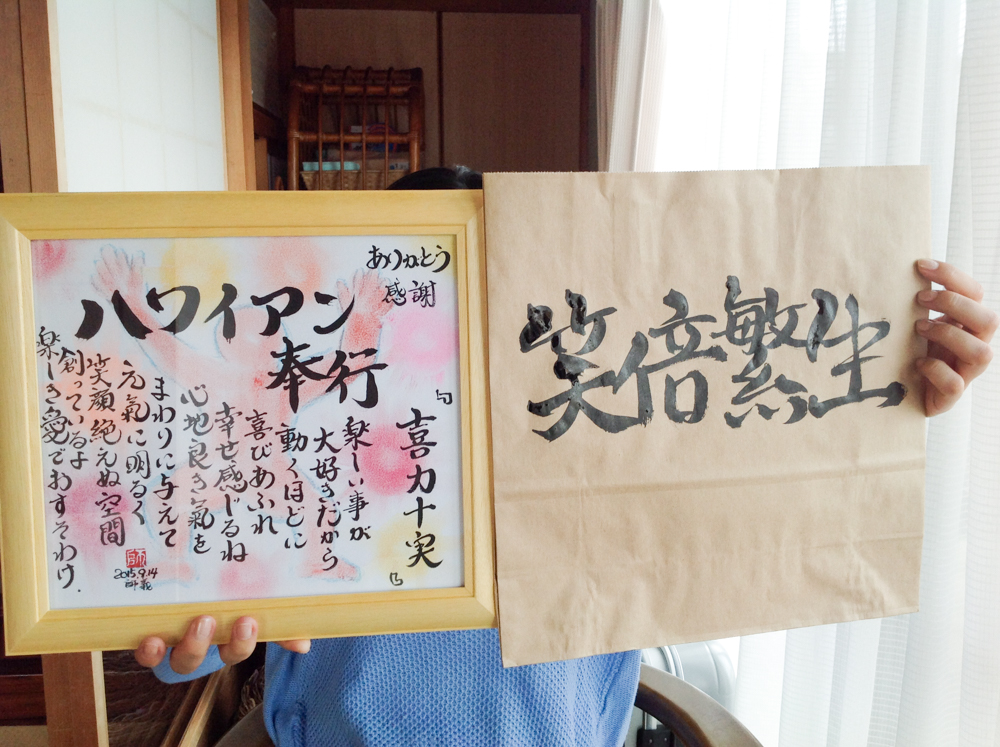 ありがとう
感謝
ハワイアン
奉行
『喜力十実』
楽しい事が
大好きだから
動くほどに
喜びあふれ
幸せ感じるね
心地良き氣を
まわりに与えて
元氣に明るく
笑顔絶えぬ空間
創っているよ
楽しき愛でおすそわけ.
師
2015.9.14
笑倍繁生